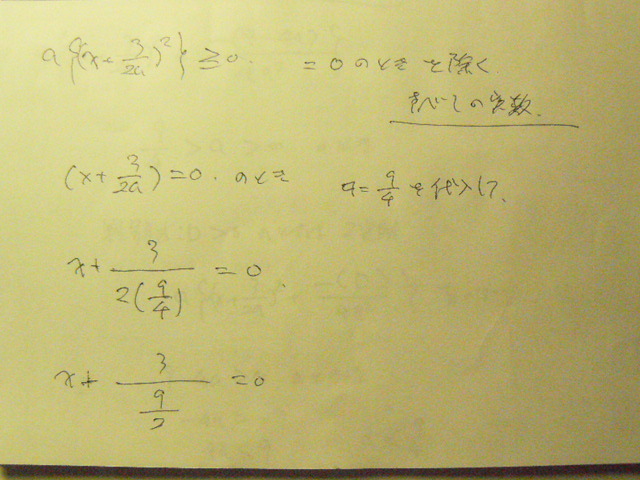 a{(x+3/2a)²} ≧ 0. =0 のとき を除く
すべての実数.
(x+3/2a)=0. のとき a=9/4 を代入して、
x+3/2(9/4)=0.
x+3/(9/2)=0